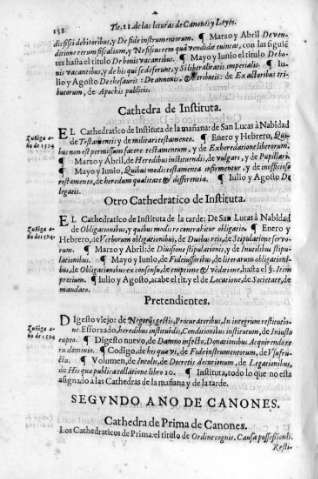 132
Tit. 21. de las lecturas de Canones y Leyes.
dissisii debitoribus, y De fide instrumentorum. ¶ Marzo y Abril De ven-
ditione rerum fiscalium, y Ne fiscus rem quã vendidit euincat, con las siguiẽ
tes hasta el titulo De bonis vacantibus. ¶ Mayo y Iunio el titulo De bo-
nis vacantibus, y de his qui se deferunt, y Si liberalitatis imperialis. ¶ Iu-
lio y Agosto De thesauris: De annonis. & tributis: de Exactoribus tri-
butorum, de Apochis publicis.
Cathedra de Instituta.
Zuñiga a-
ño de 1594
EL Cathedratico de Instituta de la mañana: de San Lucas à Nabidad
de Testamentis y de militari testamento. ¶ Enero y Hebrero, Qui-
bus non est permissum facere testamentum, y de Exheredatione liberorum.
¶ Marzo y Abril, de Heredibus instituendis, de vulgari, y de Pupillari.
¶ Mayo y Iunio, Quibus modis testamenta infirmentur, y de inofficioso
testamento, de heredum qualitate & differentia. ¶ Iulio y Agosto De
legatis.
Otro Cathedratico de Instituta.
Zuñiga a-
ño de 1594.
EL Cathedratico de Instituta de la tarde: De San Lucas à Nabidad
de Obligationibus, y quibus modis re contrahitur obligatio. ¶ Enero y
Hebrero, de Verborum obligationibus, de Duobus reis, de Stipulatione servo-
rum. ¶ Marzo y Abril: de Diuisione stipulationis, y de Inutilibus stipu-
lationibus. ¶ Mayo y Iunio, de Fideiussoribus, de literarum obligationi-
bus, de Obligationibus ex consensu, de emptione & vẽditione, hasta el §. item
pretium. ¶ Iulio y Agosto, acabe el tit. y el de Locatione, de Societate, de
mandato.
Pretendientes.
Zuñiga a-
ño de 1594
DIgesto viejo: de Negotijs gestis, Procuratoribus, In integrum restitutio-
ne. Esforzado, heredibus instituendis, Conditionibus institutionum, de Iniusto
rupto. ¶ Digesto nuevo, de Damno infecto, Donationibus, Acquirendo re-
rum dominio. ¶ Codigo, de his quæ vi, de Fide instrumentorum, de Vsufru-
ctu. ¶ Volumen, de Feudo, de Decretis decurionum, de Legationibus,
de His que publicatione libro 10. ¶ Instituta, todo lo que no esta
assignado a las Cathedras de la mañana y de la tarde.
SEGVNDO ANO DE CANONES.
Cathedra de Prima de Canones.
Los Cathedraticos de Prima: el titulo de Ordine cognit. Causa possessionis.
Resti-